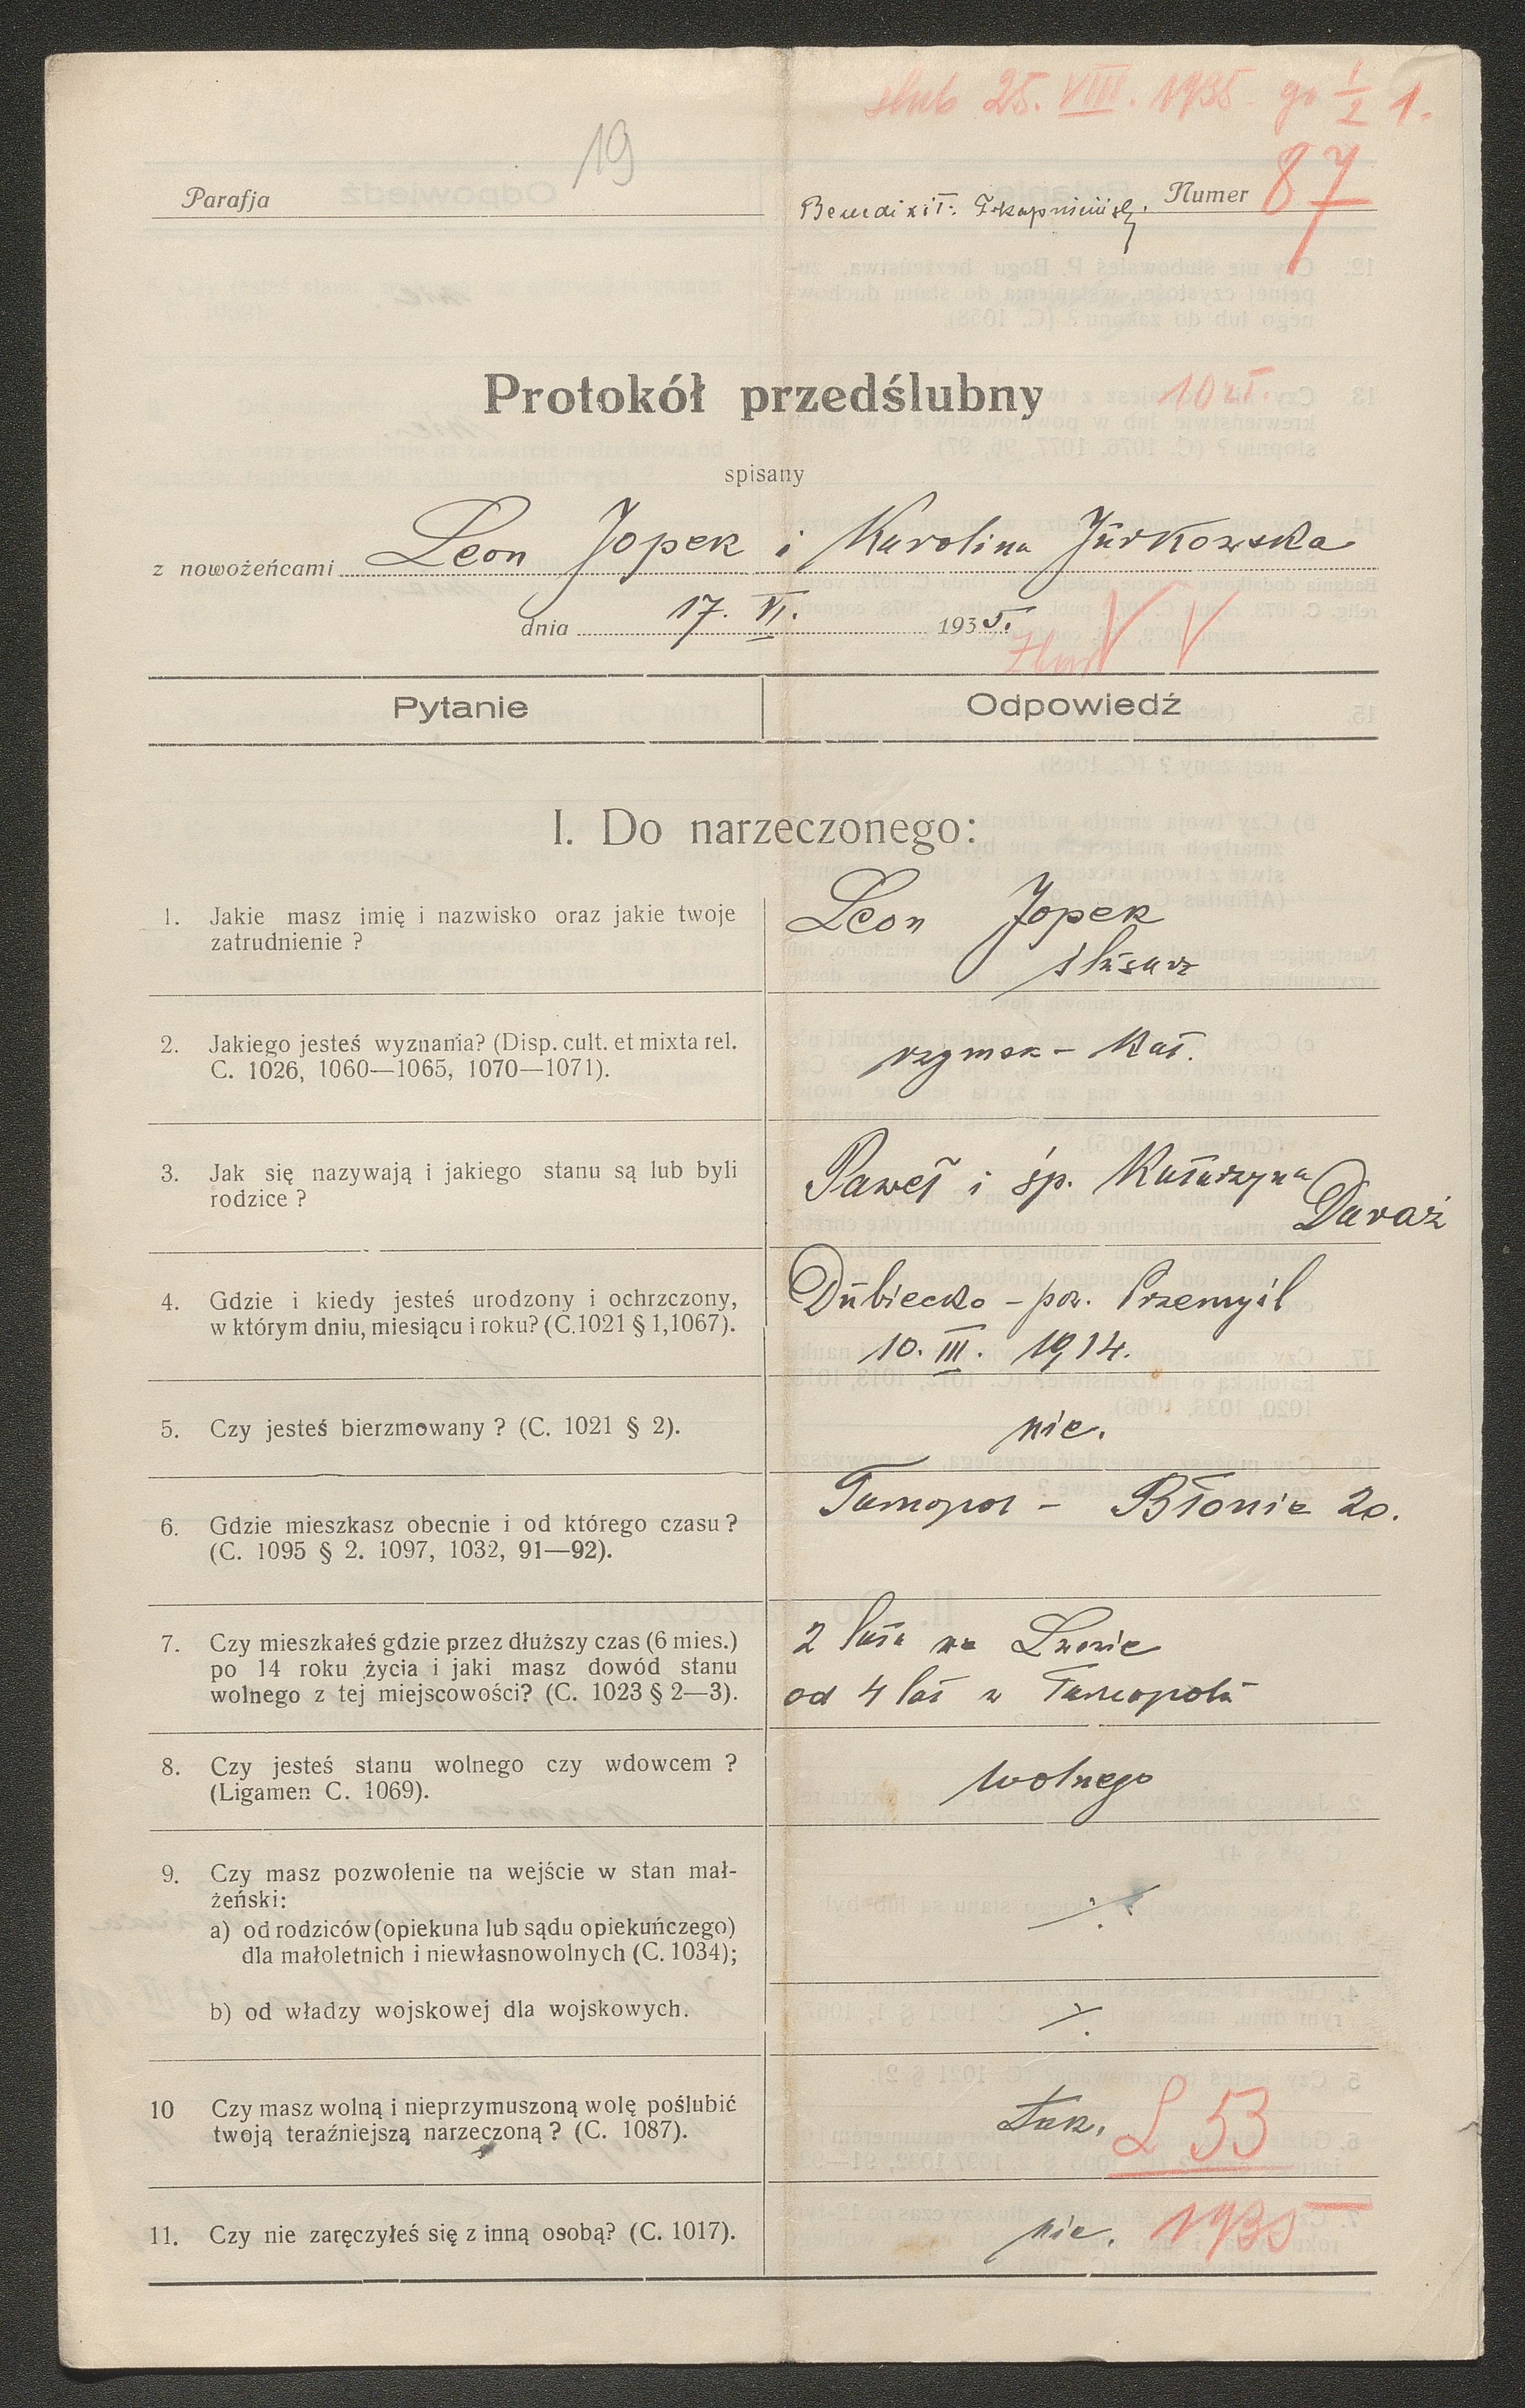 ślub 25. VIII. 1935 - go ½ 1.
19
Parafja
Benedixit: Numer 87
Protokół przedślubny 10 zł.
spisany
z nowożeńcami Leon Jopek i Karolina Jurkowska
dnia 17. VI. 1935.
Pytanie Odpowiedź
I. Do narzeczonego:
1. Jakie masz imię i nazwisko oraz jakie twoje
zatrudnienie ?
Leon Jopek
ślusarz
2. Jakiego jesteś wyznania? (Disp. cult. et mixta rel.
C. 1026, 1060—1065, 1070—1071).
rzymsk - kat.
3. Jak się nazywają i jakiego stanu są lub byli
rodzice ?
Paweł i śp. Katarzyna
Daraż
4. Gdzie i kiedy jesteś urodzony i ochrzczony,
w którym dniu, miesiącu i roku? (C.1021 § 1,1067).
Dubiecko - pow. Przemyśl
10. III. 1914.
5. Czy jesteś bierzmowany ? (C. 1021 § 2).
nie.
6. Gdzie mieszkasz obecnie i od którego czasu ?
(C. 1095 § 2. 1097, 1032, 91—92).
Tarnopol - Błonie 20.
7. Czy mieszkałeś gdzie przez dłuższy czas (6 mies.)
po 14 roku życia i jaki masz dowód stanu
wolnego z tej miejscowości? (C. 1023 § 2—3).
2 lata we Lwowie
od 4 lat w Tarnopolu
8. Czy jesteś stanu wolnego czy wdowcem ?
(Ligamen C. 1069).
wolnego
9. Czy masz pozwolenie na wejście w stan mał-
żeński:
a) od rodziców (opiekuna lub sądu opiekuńczego)
dla małoletnich i niewłasnowolnych (C. 1034);
b) od władzy wojskowej dla wojskowych.
10 Czy masz wolną i nieprzymuszoną wolę poślubić
twoją teraźniejszą narzeczoną ? (C. 1087).
tak. L 53
11. Czy nie zaręczyłeś się z inną osobą? (C. 1017).
nie. 1935